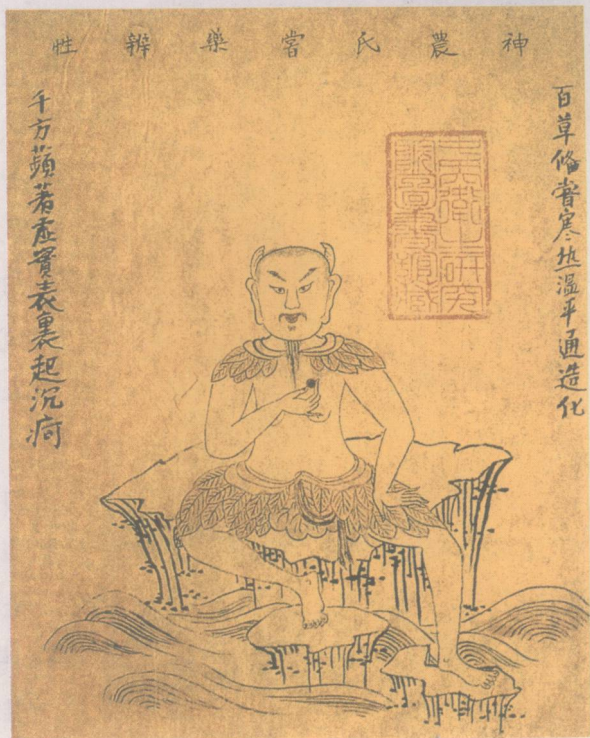 神農氏嘗藥辨性
百草俻嘗寒热溫平通造化
千方蘋著虛實表裏起沉疴